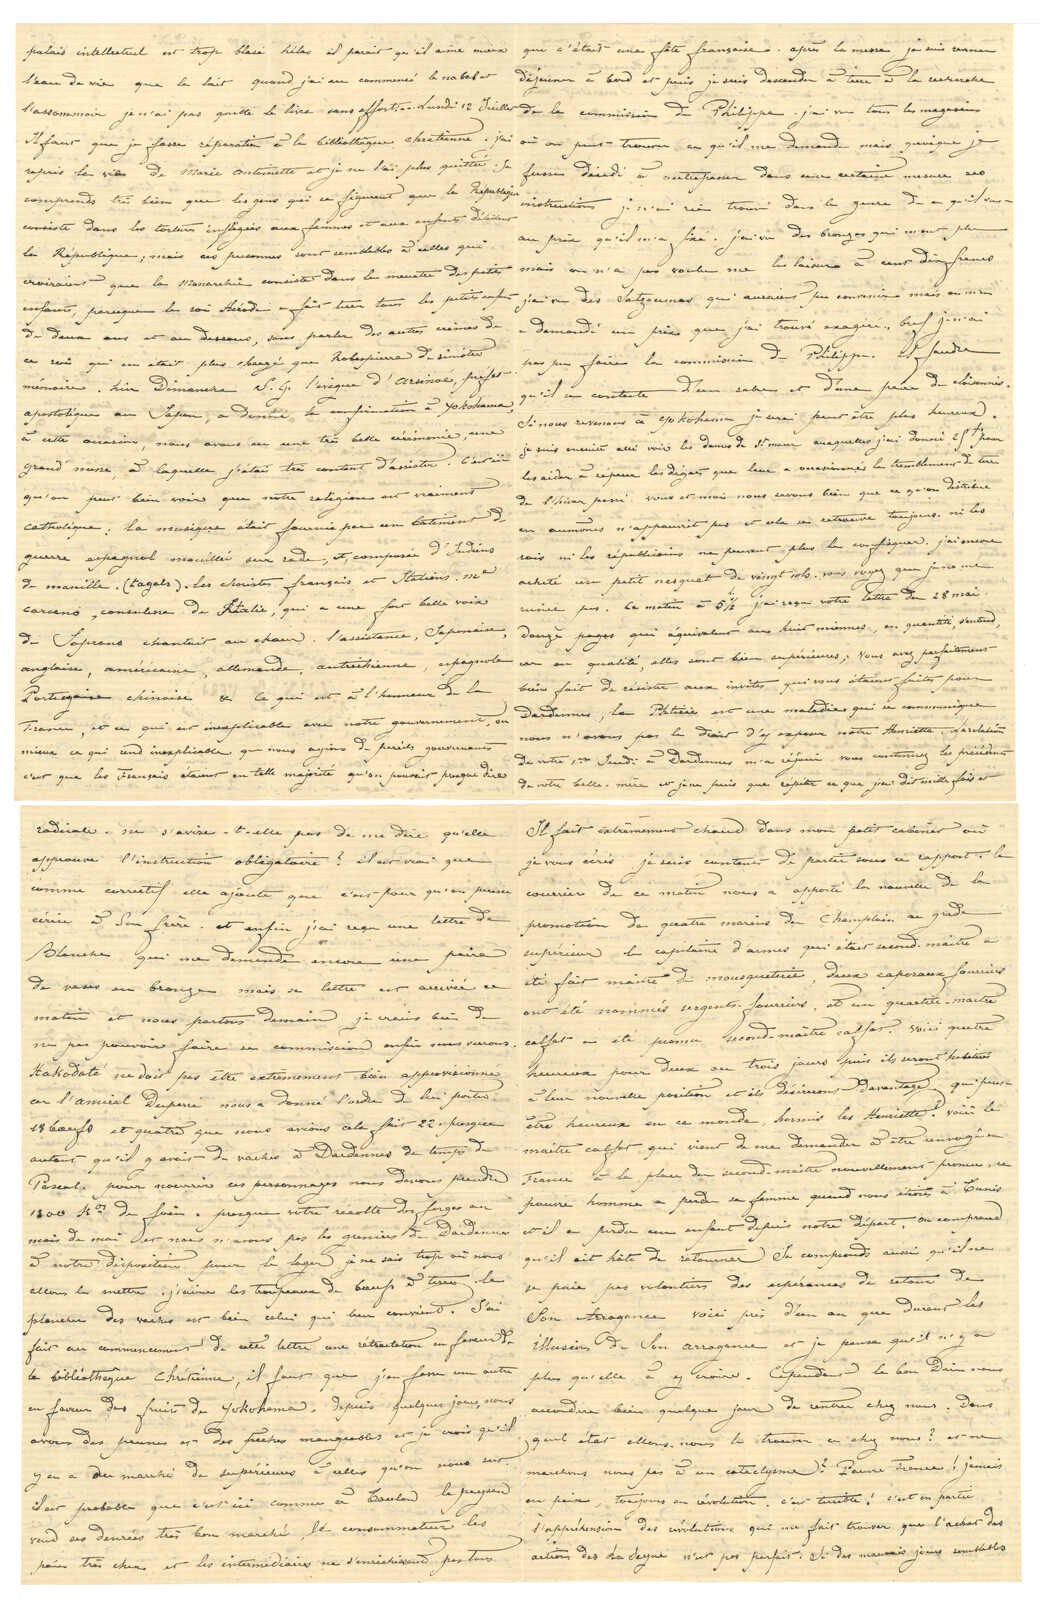 palais intellectuel est trop blasé hélas il parait qu'il aime mieux
l'eau de vie que le lait quand j'ai eu commencé le nabab et
l'assommoir je n'ai pas quitté le livre sans effort. - Lundi 12 Juillet
Il faut que je fasse réparation à la bibliothèque chrétienne. j'ai
repris la vie de Marie Antoinette et je ne l'ai plus quittée. Je
comprends très bien que les gens qui se figurent que la République
consiste dans les tortures infligées aux femmes et aux enfants détestent
la République, mais ces personnes sont semblables à celles qui
croiraient que la Monarchie consiste dans le meurtre des petits
enfants, parceque le roi Hérode a fait tuer tous les petits enfants
de deux ans et au dessous, sans parler des autres crimes de
ce roi qui en était plus chargé que Robespierre de sinistre
mémoire. hier Dimanche S. G. l'évêque d'Arsinoé, préfet
apostolique au Japon, a donné la confirmation à Yokohama,
à cette occasion, nous avons eu une très belle cérémonie, une
grand'messe, à laquelle j'étais très content d'assister. C'est ici
qu'on peut bien voir que notre religion est vraiment
catholique; la musique était fournie par un bâtiment de
guerre espagnol mouillé sur rade, et composée d'Indiens
de manille. (tagals). les choristes français et Italiens. Me
consulesse de l'Italie, qui a une fort belle voix
de Soprano chantait au chœur. l'assistance, Japonaise,
anglaise, américaine, allemande, autrichienne, espagnole
Portugaise chinoise & ce qui est à l'honneur de la
France, et ce qui est inexplicable avec notre gouvernement, ou
mieux ce qui rend inexplicable que nous ayions de pareils gouvernants
c'est que les Français étaient en telle majorité qu'on pouvait presque dire
que c'était une fête française. après la messe je suis revenu
déjeuner à bord et puis je suis descendu à terre à la recherche
de la commission de Philippe. j'ai vu tous les magasins
où on peut trouver ce qu'il me demande mais quoique je
fusse décidé à outrepasser dans une certaine mesure ses
instructions je n'ai rien trouvé dans le genre de ce qu'il veut
au prix qu'il m'a fixé. j'ai vu des bronzes qui m'ont plu
mais on n'a pas voulu me les laisser à cent dix francs
j'ai vu des Satzoumas qui auraient pu convenir mais on m'en
a demandé un prix que j'ai trouvé exagéré., bref je n'ai
pas pu faire la commission de Philippe. il faudra
qu'il se contente d'un sabre et d'une paire de cloisonnés.
Si nous revenons à Yokohama je serai peut être plus heureux.
je suis ensuite allé voir les dames de St maur auxquelles j'ai donné pour
les aider à réparer les dégâts que leur a occasionnés le tremblement de terre
de l'hiver passé. vous et moi nous savons bien que ce qu'on distribue
en aumônes n'appauvrit pas et cela se retrouve toujours. ni les
rois ni les républicains ne peuvent plus le confisquer. j'ai encore
acheté un petit de vingt sols. vous voyez que je ne me
ruine pas. Ce matin à 5h 1/2 j'ai reçu votre lettre du 28 mai.
douze pages qui équivalent aux huit miennes, en quantité, s'entend,
car en qualité, elles sont bien supérieures; vous avez parfaitement
bien fait de résister aux invités qui vous étaient faites pour
Dardennes, la Phtisie est une maladie qui se communique
nous n'avons pas le droit d'y exposer notre Henriette. la relation
de votre 1er Jeudi à Dardennes m'a réjoui vous continuez les précédents
de votre belle-mère et je ne puis que répéter ce que j'ai dit mille fois et
radicale. ne s'avise-t-elle pas de me dire qu'elle
approuve l'instruction obligatoire? il est vrai que
comme correctif elle ajoute que c'est pour qu'on puisse
écrire à Son frère. et enfin j'ai reçu une lettre de
Blanche qui me demande encore une paire
de vases en bronze mais sa lettre est arrivée ce
matin et nous partons demain je crains bien de
ne pas pouvoir faire sa commission enfin nous verrons.
Hakodaté ne doit pas être extrêmement bien approvisionné
car l'amiral Duperré nous a donné l'ordre de lui porter
18 bœufs et quatre que nous avions cela fait 22. presque
autant qu'il y avait de vaches à Dardennes du temps de
Pascal. pour nourrir ces personnages nous devons prendre
1800 Kos de foin. presque votre récolte des forges au
mois de mai et nous n'avons pas les greniers de Dardennes
à notre disposition pour le loger je ne sais trop où nous
allons le mettre. j'aime les troupeaux de bœufs à terre, le
plancher des vaches est bien celui qui leur convient. J'ai
fait au commencement de cette lettre une rétractation en faveur de
la bibliothèque Chrétienne, il faut que j'en fasse une autre
en faveur des fruits de Yokohama. depuis quelques jours, nous
avons des prunes et des pêches mangeables et je crois qu'il
y en a au marché de supérieures à celles qu'on nous sert.
il est probable que c'est ici comme à Toulon le paysan
vend ses denrées très bon marché, le consommateur les
paie très cher et les intermédiaires ne s'enrichissent pas tous
Il fait extrêmement chaud dans mon petit cabinet où
je vous écris je suis content de partir sous ce rapport. le
courrier de ce matin nous a apporté la nouvelle de la
promotion de quatre marins du Champlain au grade
supérieur le capitaine d'armes qui était second-maître a
été fait maître de mousqueterie, deux caporaux fourriers
ont été nommés sergents-fourriers, et un quartier-maître
calfat a été promu second-maître calfat. Voici quatre
heureux pour deux ou trois jours puis ils seront habitués
à leur nouvelle position et ils désireront davantage, qui peut
être heureux en ce monde, hormis les Henriette? voilà le
maître calfat qui vient de me demander à être renvoyé en
France à la place du second-maître nouvellement promu, ce
pauvre homme a perdu sa femme quand nous étions à Tunis
et il a perdu un enfant depuis notre départ, on comprend
qu'il ait hâte de retourner. Je comprends aussi qu'il ne
se paie pas volontiers des espérances de retour de
Son Arrogance voici près d'un an que durent les
illusions de Son arrogance et je pense qu'il n'y a
plus qu'elle à y croire. Cependant le bon Dieu nous
accordera bien quelque jour de rentrer chez nous. Dans
quel état allons-nous le trouver ce chez nous? est-ce
marchons nous pas à un cataclysme? Pauvre France! jamais
en paix, toujours en révolution. c'est terrible! c'est en partie
l'appréhension des révolutions qui me fait trouver que l'achat des
actions des n'est pas parfait. Si des mauvais jours semblables